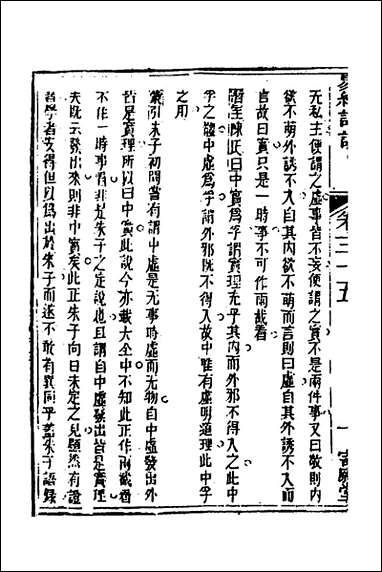 卷三十五
无私主便謂之虛事皆不妄便謂之實不是兩件事又曰敬則內
欲不萌外誘不入自其內欲不萌而言則曰虛自其外誘不入而
言故曰實只是一時事不可作兩截看
陳氏曰中實爲孚謂實理充乎其內而外邪不得入之此中
孚之體中虛爲孚謂外邪既不得入故中唯有虛明道理此中孚
之用
引朱子初間嘗有謂中虛是无事時虛而无物自中虛發出外
皆是實理所以曰中實此說今亦載大全中不知此正作兩截看
不作一時事看非朱子之定說也且謂自中虛發出皆是實理
夫既云發出來則非中實矣此正朱子向日未定之見顯然有證
學者安得但以爲出於朱子而遂不敢有異同乎蓋朱子語錄